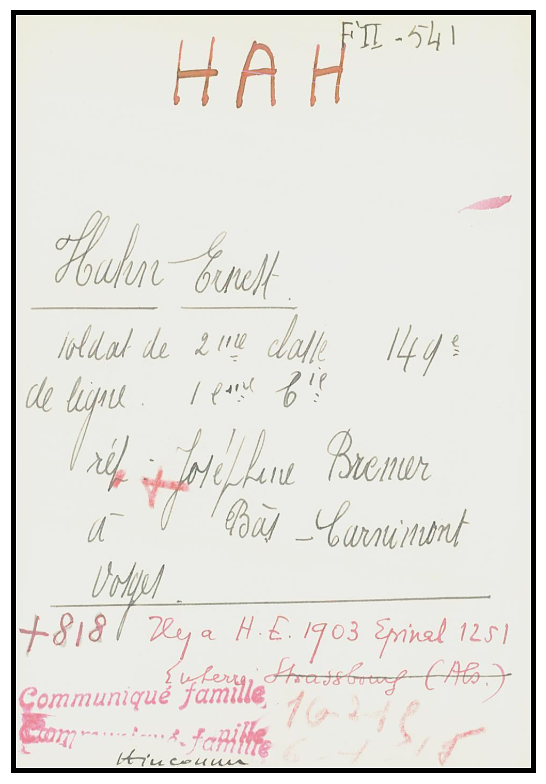 FII - 541
HAH
Hahn Ernest.
soldat de 2me classe 149e
de ligne. 1ere Cie
réf : Joséphine Bremer
à Bas - Carnimont
Vosges.
+818 Il y a H.E. 1903 Epinal 1251
Enterré Strassbourg (Als.)
Communiqué famille
famille
Hinconnu